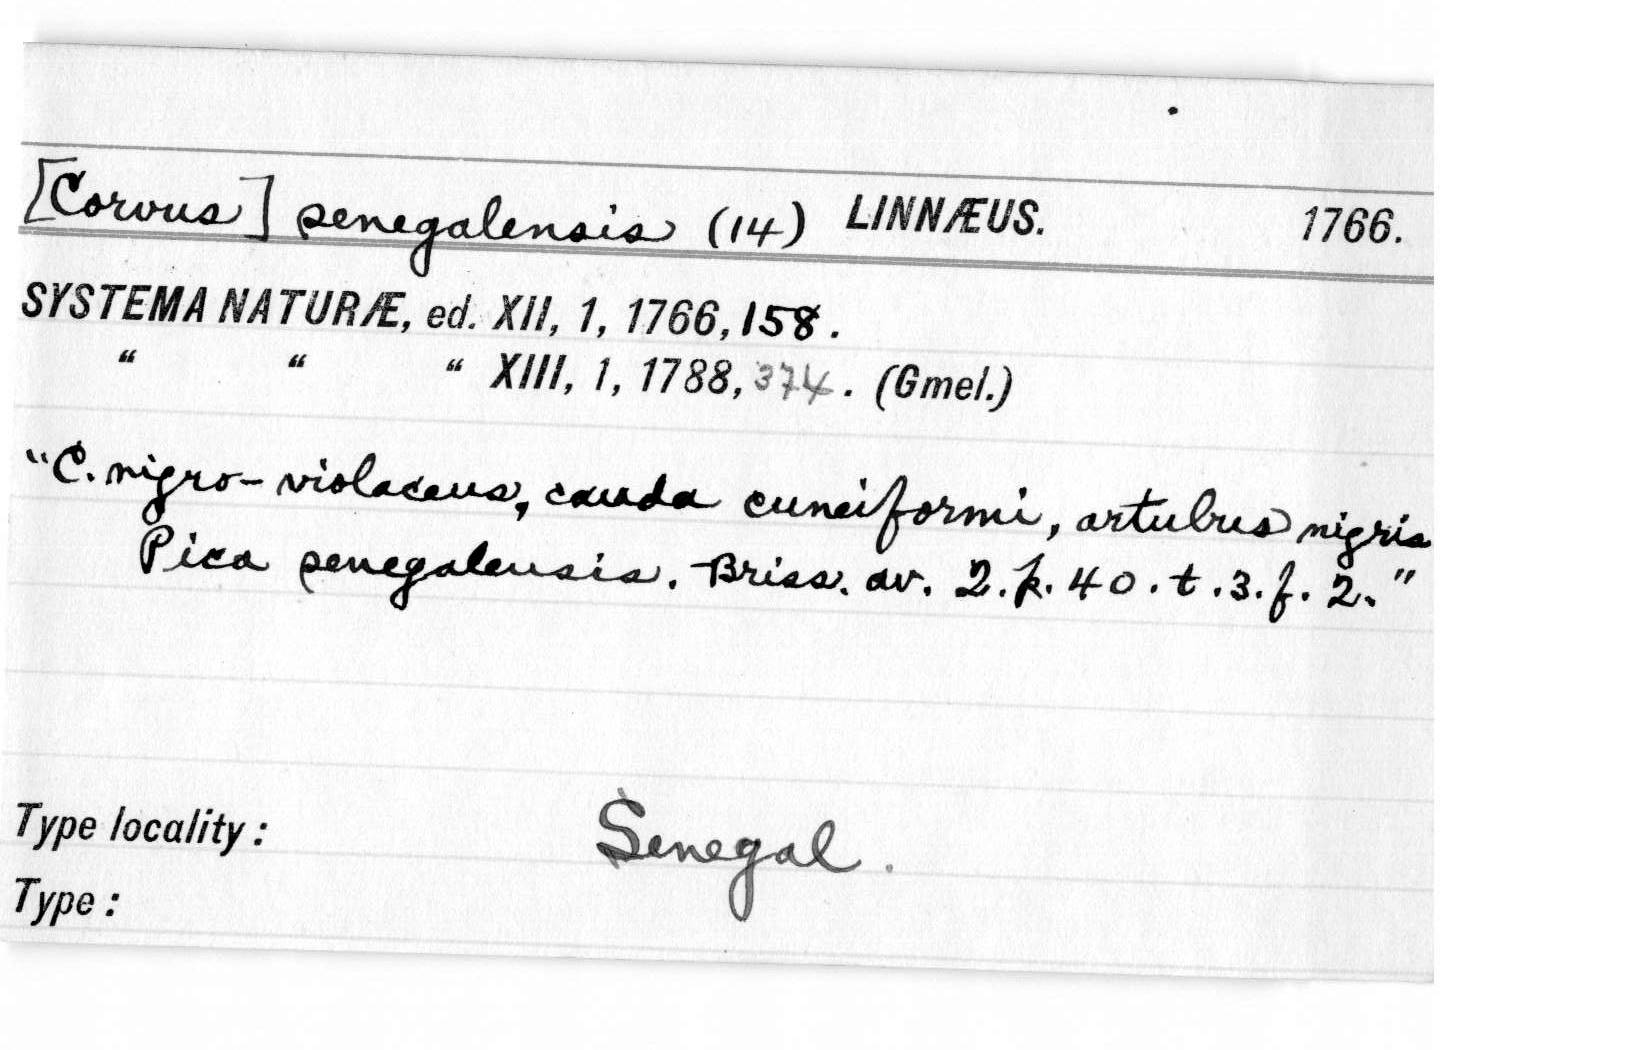 [Corvus] senegalensis (14) LINNÆUS. 1766.
SYSTEMA NATURÆ, ed. XII, 1, 1766, 158.
“ “ “ XIII, 1, 1788, 374. (Gmel.)
“C. nigro-violaceus, cauda cuneiformi, artubus nigris
Pica senegalensis. Briss. av. 2. p. 40. t. 3. f. 2.”
Type locality: Senegal.
Type: